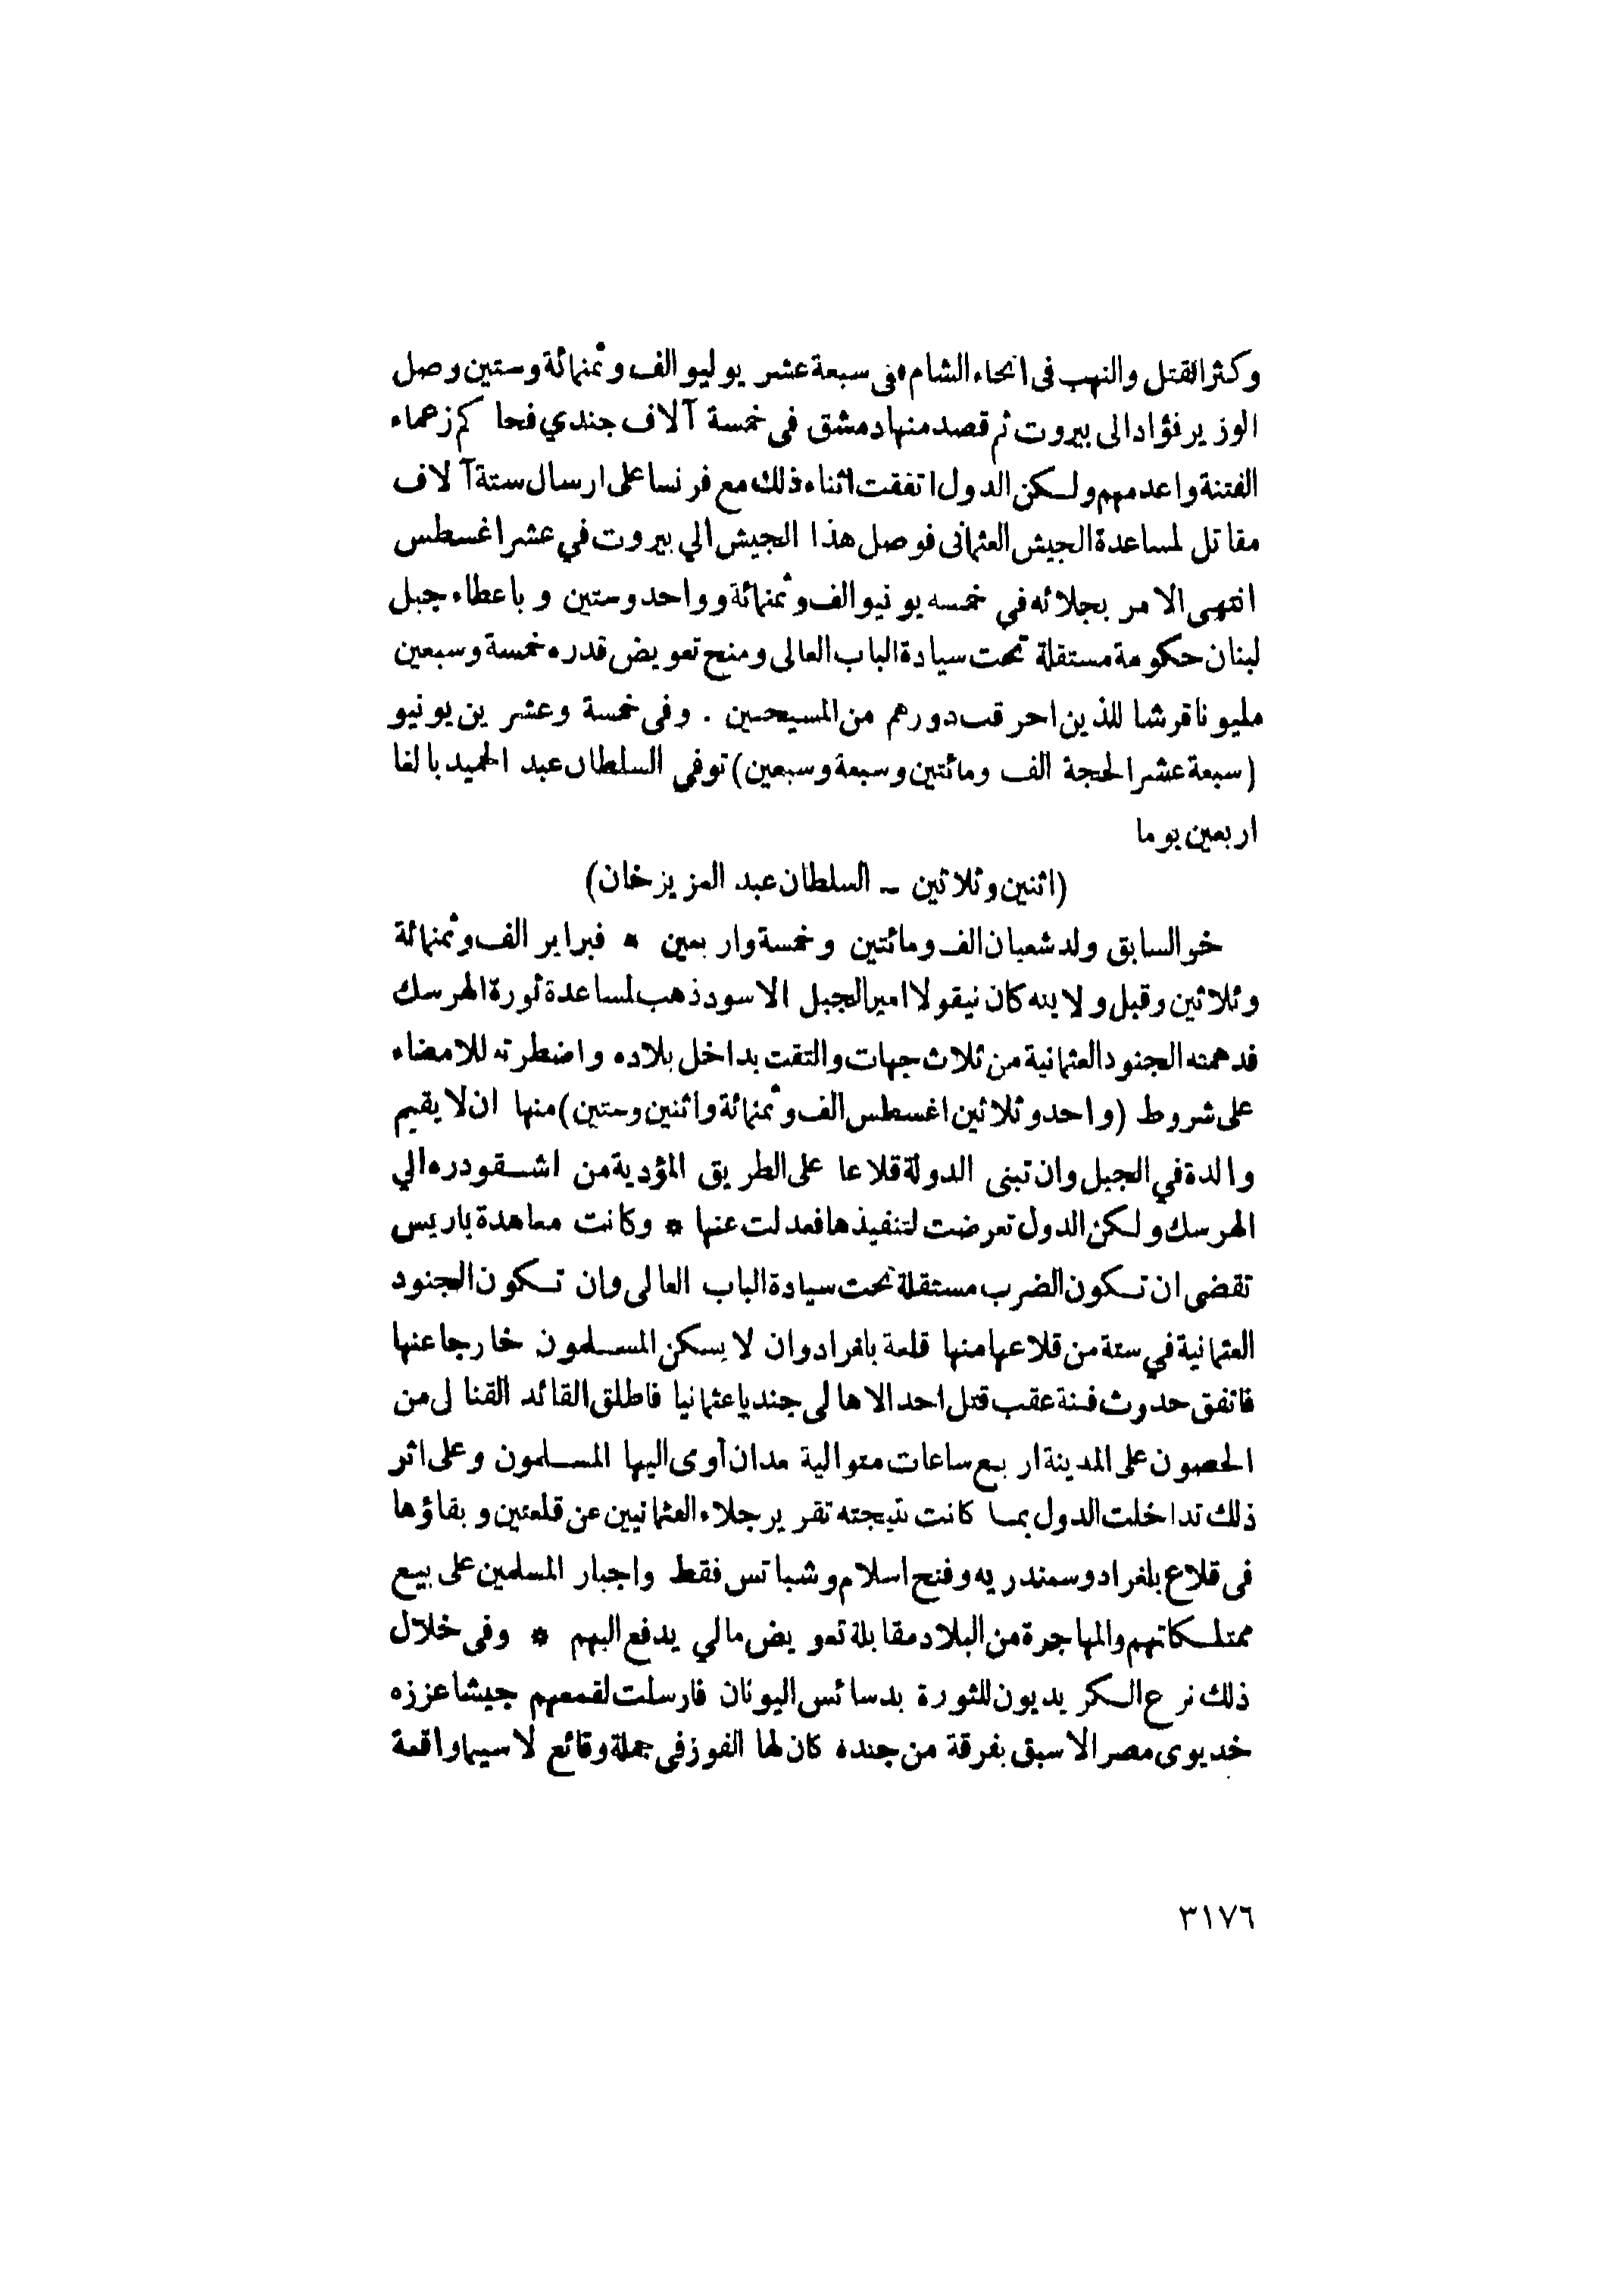 وكثر القتل والنهب فى انحاء الشام ففى سبعة عشر يوليو الف وثمنمائة وستين وصل
الوزير فؤاد الى بيروت ثم قصد منها دمشق فى خمسة آلاف جندي فحاكم زعماء
الفتنة واعدمهم ولكن الدول اتفقت اثناء ذلك مع فرنسا على ارسال ستة آلاف
مقاتل لمساعدة الجيش العثمانى فوصل هذا الجيش الي بيروت في عشر اغسطس
انتهى الامر بجلائه في خمسه يونيو الف وثمنمائة وواحد وستين وباعطاء جبل
لبنان حكومة مستقلة تحت سيادة الباب العالى ومنح تعويض قدره خمسة وسبعين
مليونا قرشا للذين احرقت دورهم من المسيحين . وفى خمسة وعشرين يونيو
(سبعة عشر الحجة الف ومائتين وسبعة وسبعين) توفى السلطان عبد الحميد بالغا
اربعين يوما
(اثنين وثلاثين – السلطان عبد العزيز خان)
خو السابق ولد شعبان الف ومائتين وخمسة واربعين * فبراير الف وثمنمائة
وثلاثين وقبل ولايته كان نيقولا امير الجبل الاسود ذهب لمساعدة ثورة الهرسك
فدهمته الجنود العثمانية من ثلاث جهات والتقت بداخل بلاده واضطرته للامضاء
على شروط (واحد وثلاثين اغسطس الف وثمنمائة واثنين وستين) منها ان لا يقيم
والدة في الجبل وان تبنى الدولة قلاعا على الطريق المؤدية من اشقودره الي
الهرسك ولكن الدول تعرضت لتنفيذها فعدلت عنها * وكانت معاهدة باريس
تقضى ان تكون الضرب مستقلة تحت سيادة الباب العالى وان تكون الجنود
العثمانية في ستة من قلاعها منها قلعة بلغراد وان لا يسكن المسلمون خارجا عنها
فاتفق حدوث فتنة عقب قتل احد الاهالى جنديا عثمانيا فاطلق القائد القنا لى من
الحصون على المدينة اربع ساعات متوالية مدان آوى اليها المسلمون وعلى اثر
ذلك تداخلت الدول بما كانت نتيجته تقرير جلاء العثمانيين عن قلعتين وبقاؤها
فى قلاع بلغراد وسمندريه وفتح اسلام وشباتس فقط واجبار المسلمين على بيع
ممتلكاتهم والمهاجرة من البلاد مقابلة تعويض مالي يدفع اليهم * وفى خلال
ذلك نزع الكريديون للثورة بدسائس اليونان فارسلت لقمعهم جيشا عززه
خديوى مصر الاسبق بفرقة من جنده كان لها الفوز فى جملة وقائع لا سيما واقعة
٣١٧٦